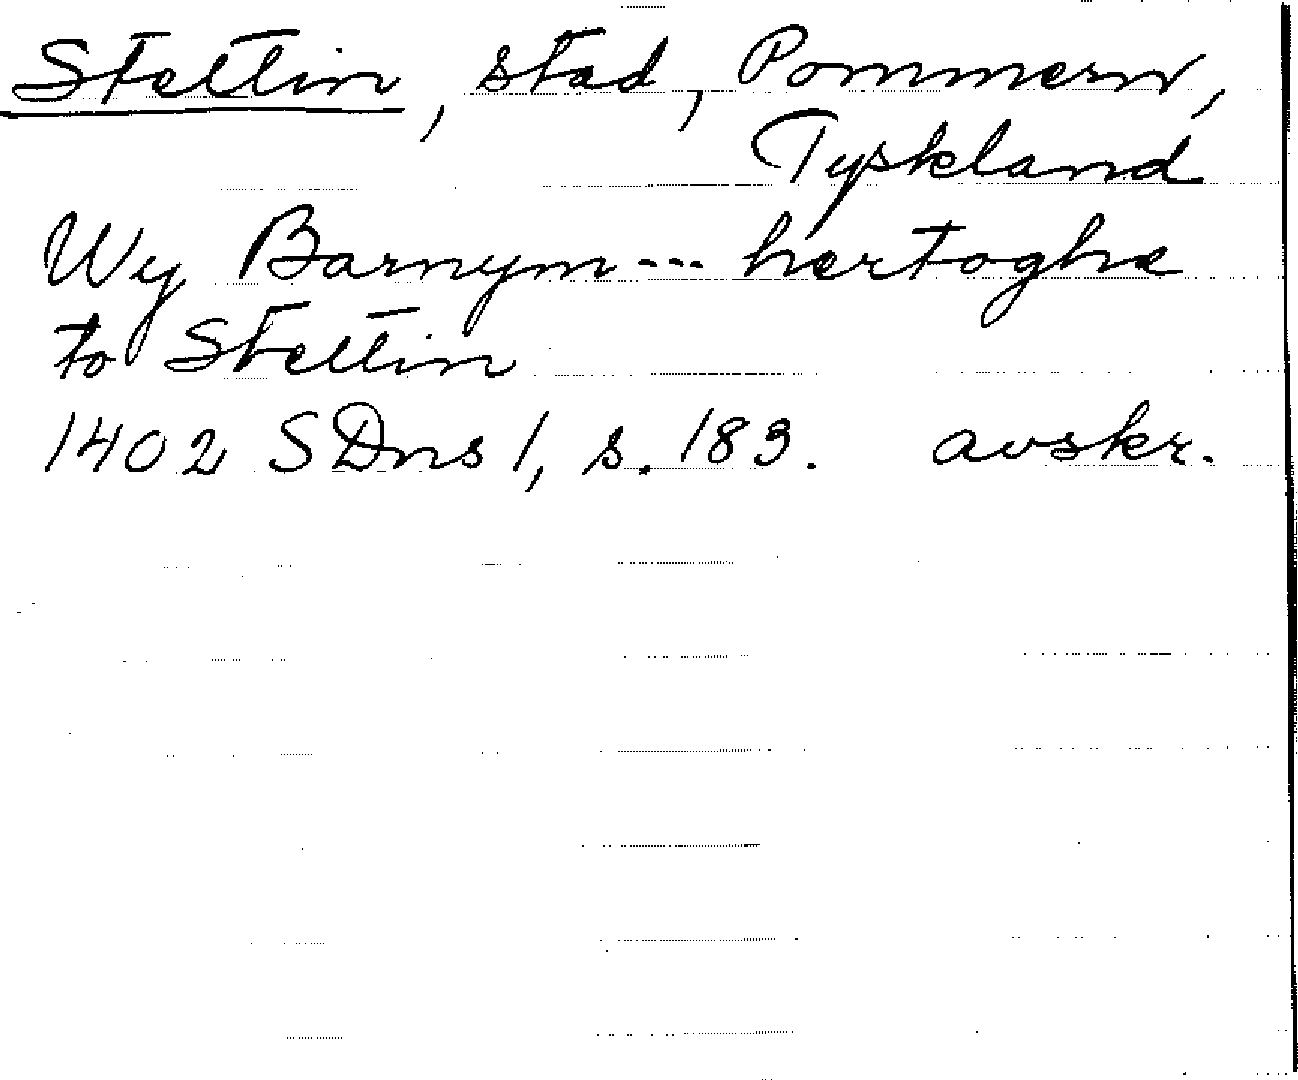 Stettin, stad, Pommern,
Tyskland
Wy Barnym --- hertoghe
to Stettin
1402 SDns 1, s. 183. avskr.